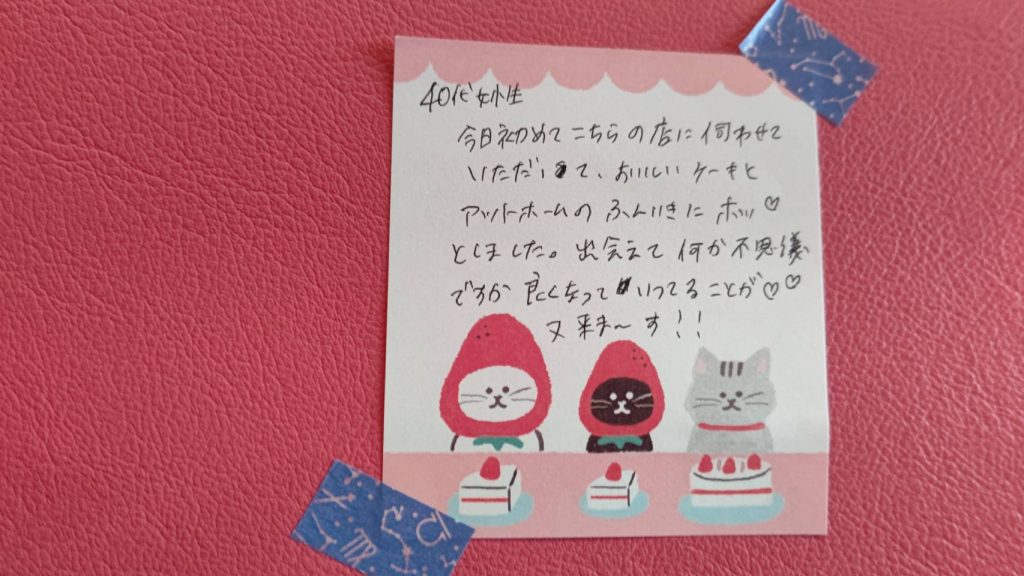 40代女性
今日初めてこちらの店に伺わせて
いただいて、おいしいケーキと
アットホームのふんいきにホッ♡
としました。出会えて何か不思議
ですが良くなっていってることが♡♡
又来ま～す!!